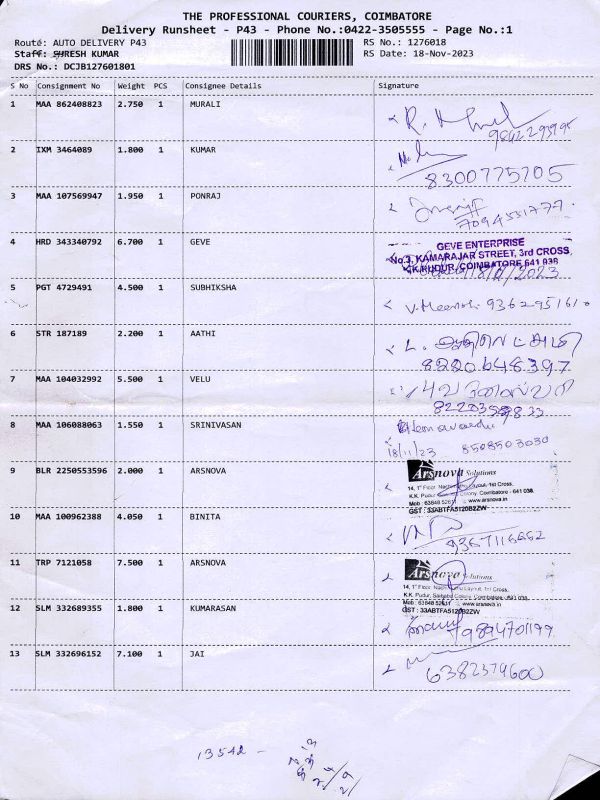 THE PROFESSIONAL COURIERS, COIMBATORE
Delivery Runsheet - P43 - Phone No.:0422-3505555 - Page No.:1
Route: AUTO DELIVERY P43 RS No.: 1276018
Staff: SURESH KUMAR RS Date: 18-Nov-2023
DRS No.: DCJB127601801
S No Consignment No Weight PCS Consignee Details Signature
1 MAA 862408823 2.750 1 MURALI
2 IXM 3464089 1.800 1 KUMAR
8300775705
3 MAA 107569947 1.950 1 PONRAJ
4 HRD 343340792 6.700 1 GEVE
GEVE ENTERPRISE
No.3, KAMARAJAR STREET, 3rd CROSS,
K.K.PUDUR, COIMBATORE 641 038
5 PGT 4729491 4.500 1 SUBHIKSHA
6 STR 187189 2.200 1 AATHI
8220648397
7 MAA 104032992 5.500 1 VELU
8 MAA 106088063 1.550 1 SRINIVASAN
18/11/23 8508503030
9 BLR 2250553596 2.000 1 ARSNOVA
Arsnova Solutions
14, 1st Floor, Layout, 1st Cross,
K.K. Pudur Colony, Coimbatore - 641 038.
www.arsnova.in
GST : 33ABTFA5120B2ZW
10 MAA 100962388 4.050 1 BINITA
9367116662
11 TRP 7121058 7.500 1 ARSNOVA
Arsnova Solutions
Layout, 1st Cross,
K.K. Pudur, Colony, Coimbatore
www.arsnova.in
GST : 33ABTFA5120B2ZW
12 SLM 332689355 1.800 1 KUMARASAN
9894701199
13 SLM 332696152 7.100 1 JAI
6382379600
13542 -